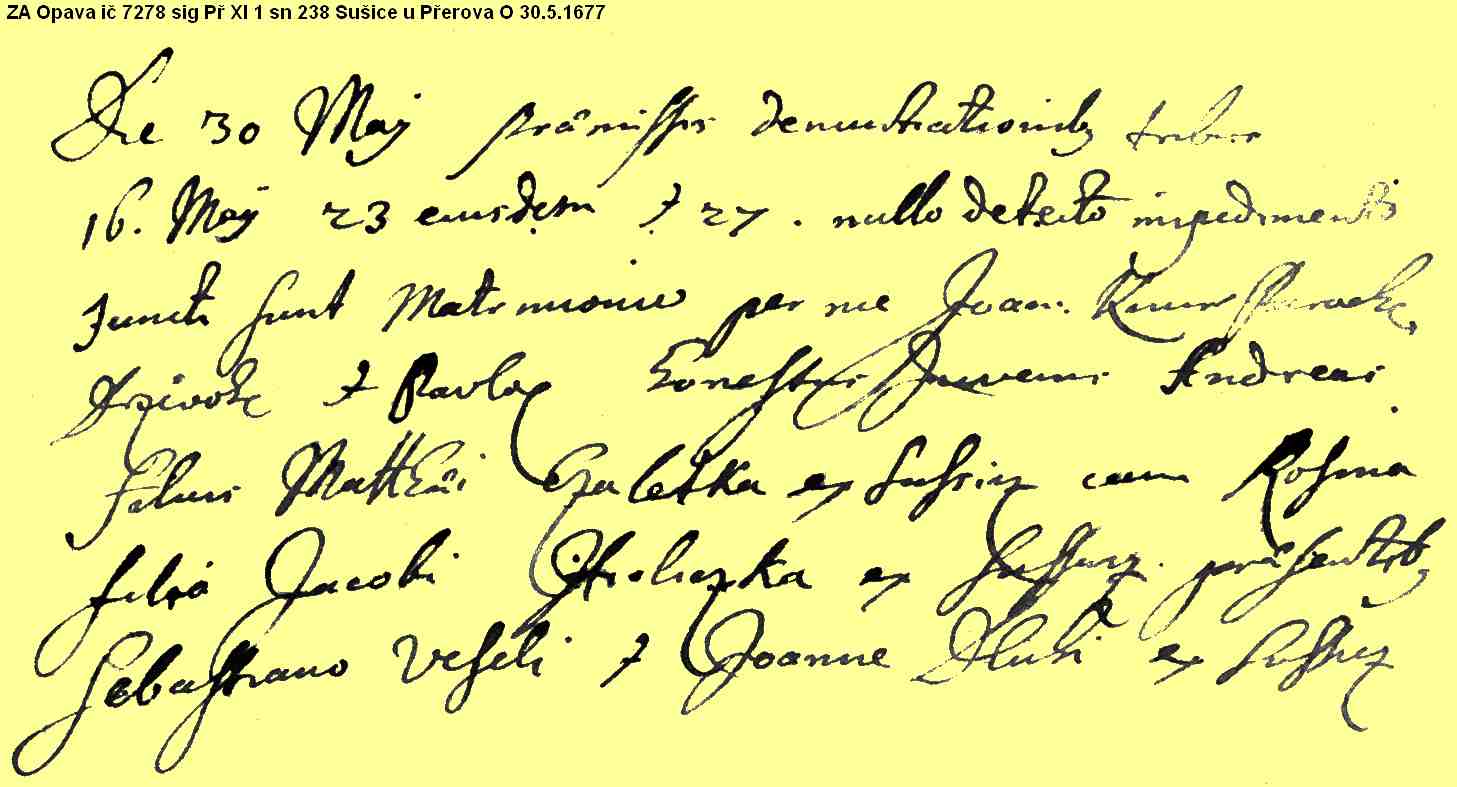 ZA Opava ič 7278 sig Př XI 1 sn 238 Sušice u Přerova O 30.5.1677
Die 30 Maÿ præmissis denuntiationib9 tribus
16. Maÿ 23 eiusdem & 27. nullo detecto impedimento
Juncti sunt Matrimonio per me Joan.
& Honestus Juvenis Andreas
Filius Matthæi Czaletka ex Sussicz cum Rosina
filia Jacobi ex Sussicz præsentib9
Sebastiano Veseli & Joanne Dluhi ex Sussicz